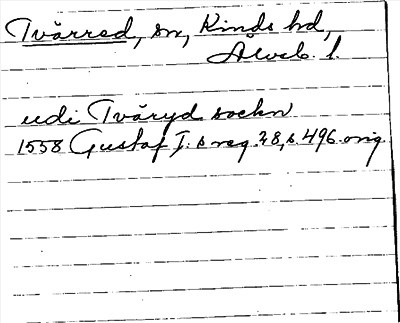 Tvärred, sn, Kinds hd,
Älvsb. l.
udi Tvåryd sockn
1558 Gustaf I:s reg. 28, s. 496. orig.